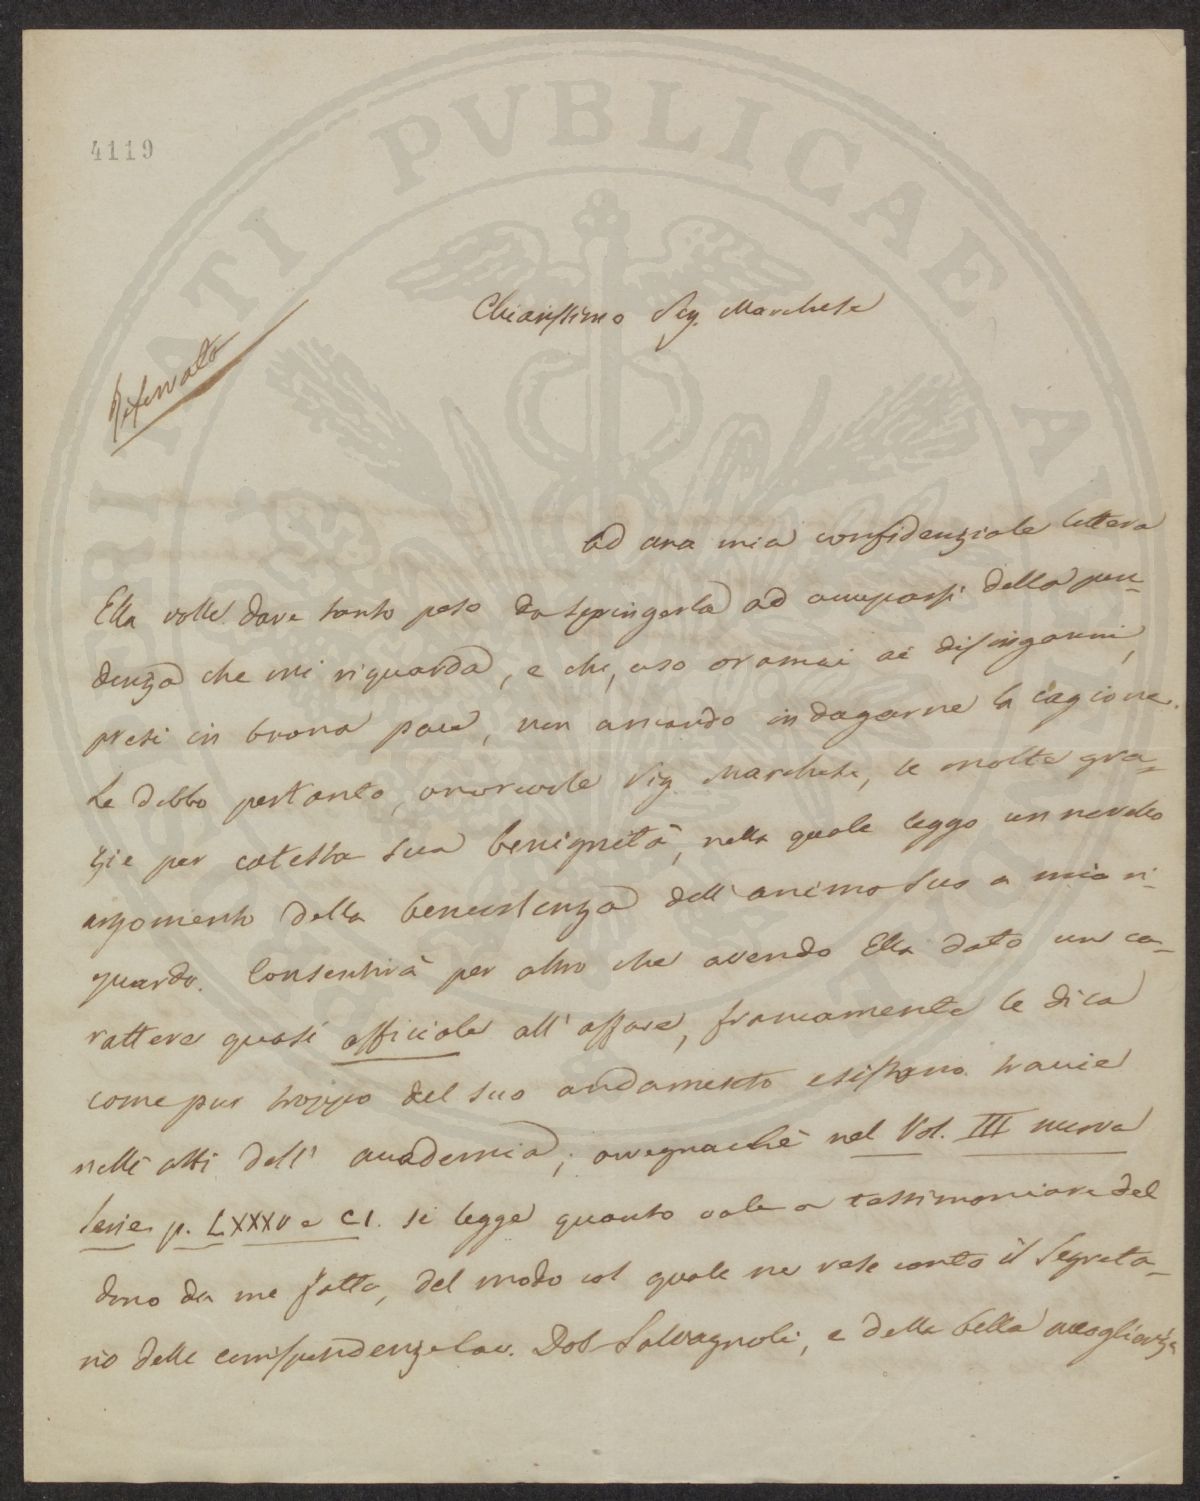 PROSPERITATI PUBLICAE AUGENDAE
4119
Chiarissimo Sig. Marchese
Riservato
Ad una mia confidenziale lettera
Ella volle dare tanto peso da spingerla ad occuparsi della pen-
denza che mi riguarda, e che, uso oramai ai disinganni,
presi in buona pace, non amando indagarne la cagione.
Le debbo pertanto, onorevole Sig. Marchese, le molte gra-
zie per cotesta sua benignità, nella quale leggo un novello
argomento della benevolenza dell'animo suo a mio ri-
guardo. Consentirà per altro che avendo Ella dato un ca-
rattere quasi officiale all'affare, francamente le dica
come pur troppo del suo andamento esistono tracie
nelli atti dell'accademia; avvegnachè nel Vol. III nuova
Serie p. LXXXV e CI. si legge quanto vale a testimoniare del
dono da me fatto, del modo col quale ne rese conto il Segreta-
rio delle corrispondenze Cav. Dot Salvagnoli, e della bella accoglienza